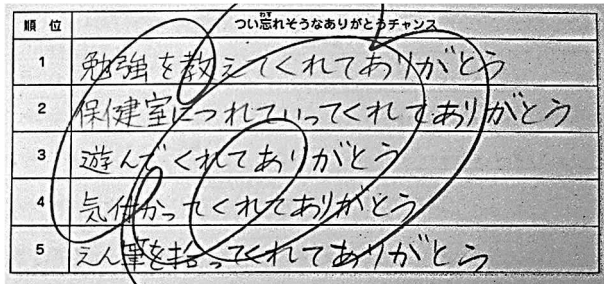 順位 つい忘れそうなありがとうチャンス
1 勉強を教えてくれてありがとう
2 保健室につれていってくれてありがとう
3 遊んでくれてありがとう
4 気付かってくれてありがとう
5 えん筆を拾ってくれてありがとう